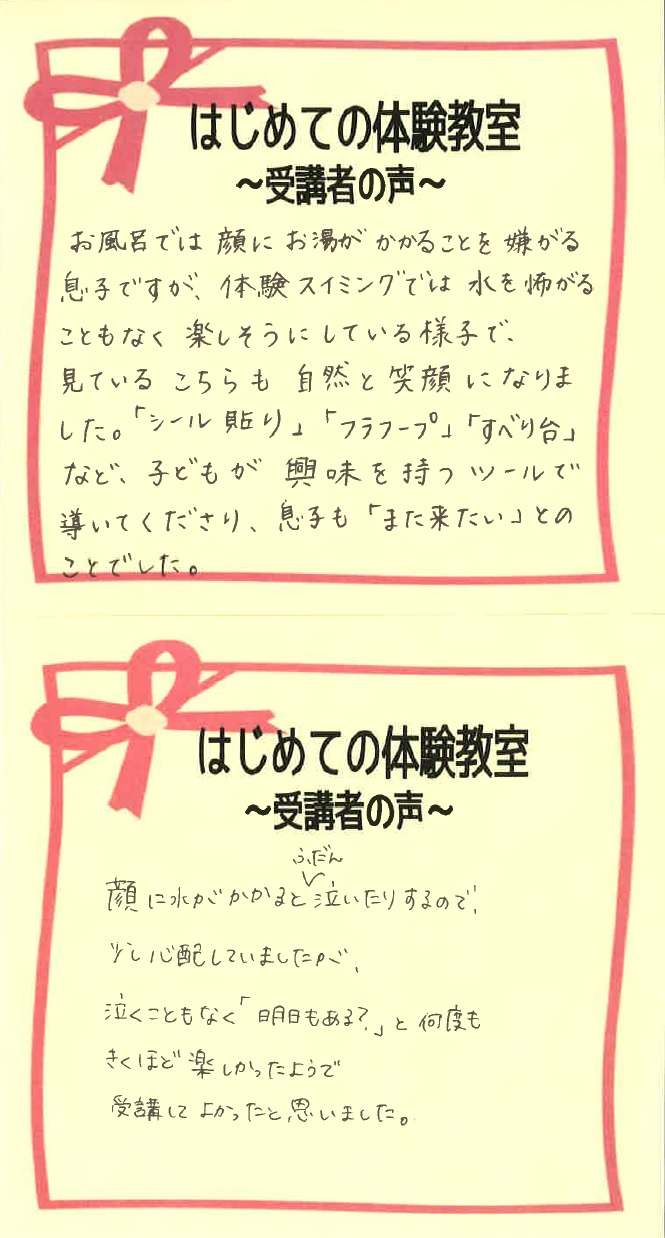 はじめての体験教室
~受講者の声~
お風呂では 顔に お湯が かかることを 嫌がる
息子ですが、体験スイミングでは 水を怖がる
こともなく 楽しそうにしている様子で、
見ている こちらも 自然と 笑顔 になりま
した。「シール貼り」「フラフープ」「すべり台」
など、子どもが 興味を持つ ツールで
導いてくださり、息子も「また来たい」との
ことでした。
はじめての体験教室
~受講者の声~
ふだん
顔に水がかかると泣いたりするので、
少し心配していましたが、
泣くこともなく「明日もある?」と何度も
きくほど楽しかったようで
受講して よかったと思いました。